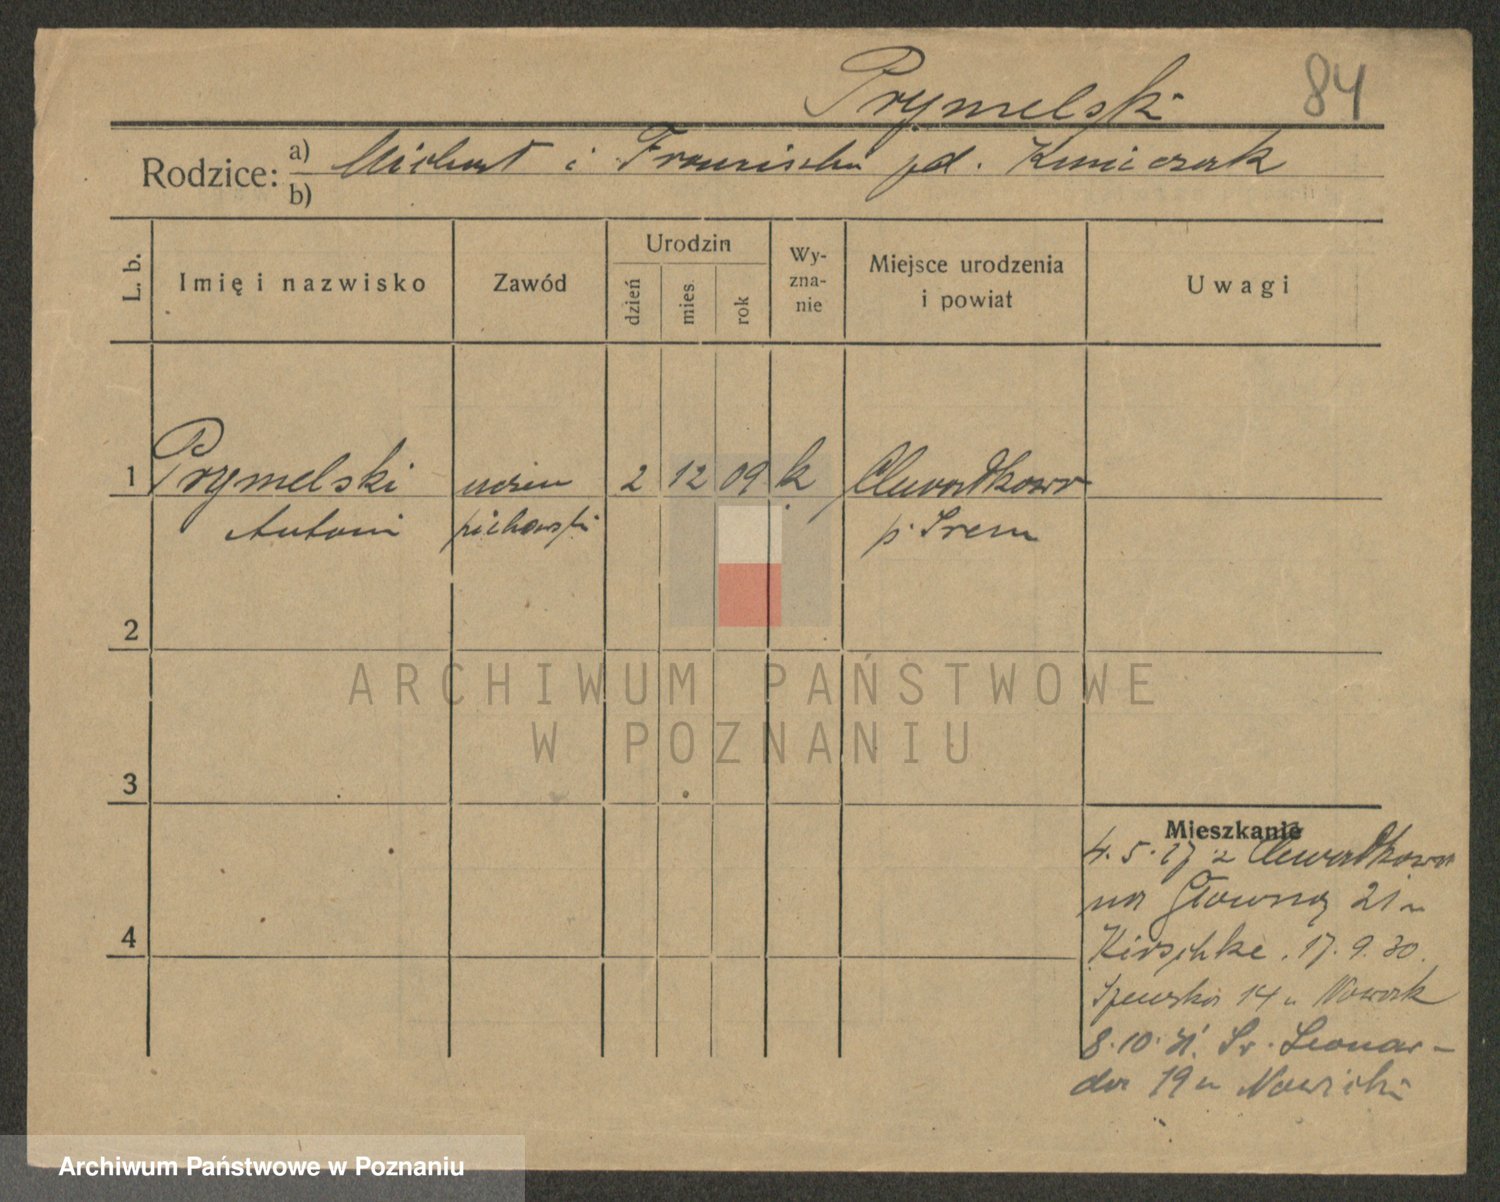 Prymelski 84
Rodzice: a) Michał i Franciszka pd. Kmieczak
b)
L. b.
Imię i nazwisko
Zawód
Urodzin
dzień
mies
rok
Wy-
zna-
nie
Miejsce urodzenia
i powiat
Uwagi
1 Prymelski uczeń 2 12 09 k Chwałkowo
Antoni piekarski p. Śrem
2
3
4
Mieszkanie
4.5.27 z Chwałkowa
na Główną 21 u
Kirschke. 17.9.30.
Szewska 14 u Nowak
8.10.31. Św. Leonar-
da 19 u Nowicki
ARCHIWUM PAŃSTWOWE
W POZNANIU
Archiwum Państwowe w Poznaniu